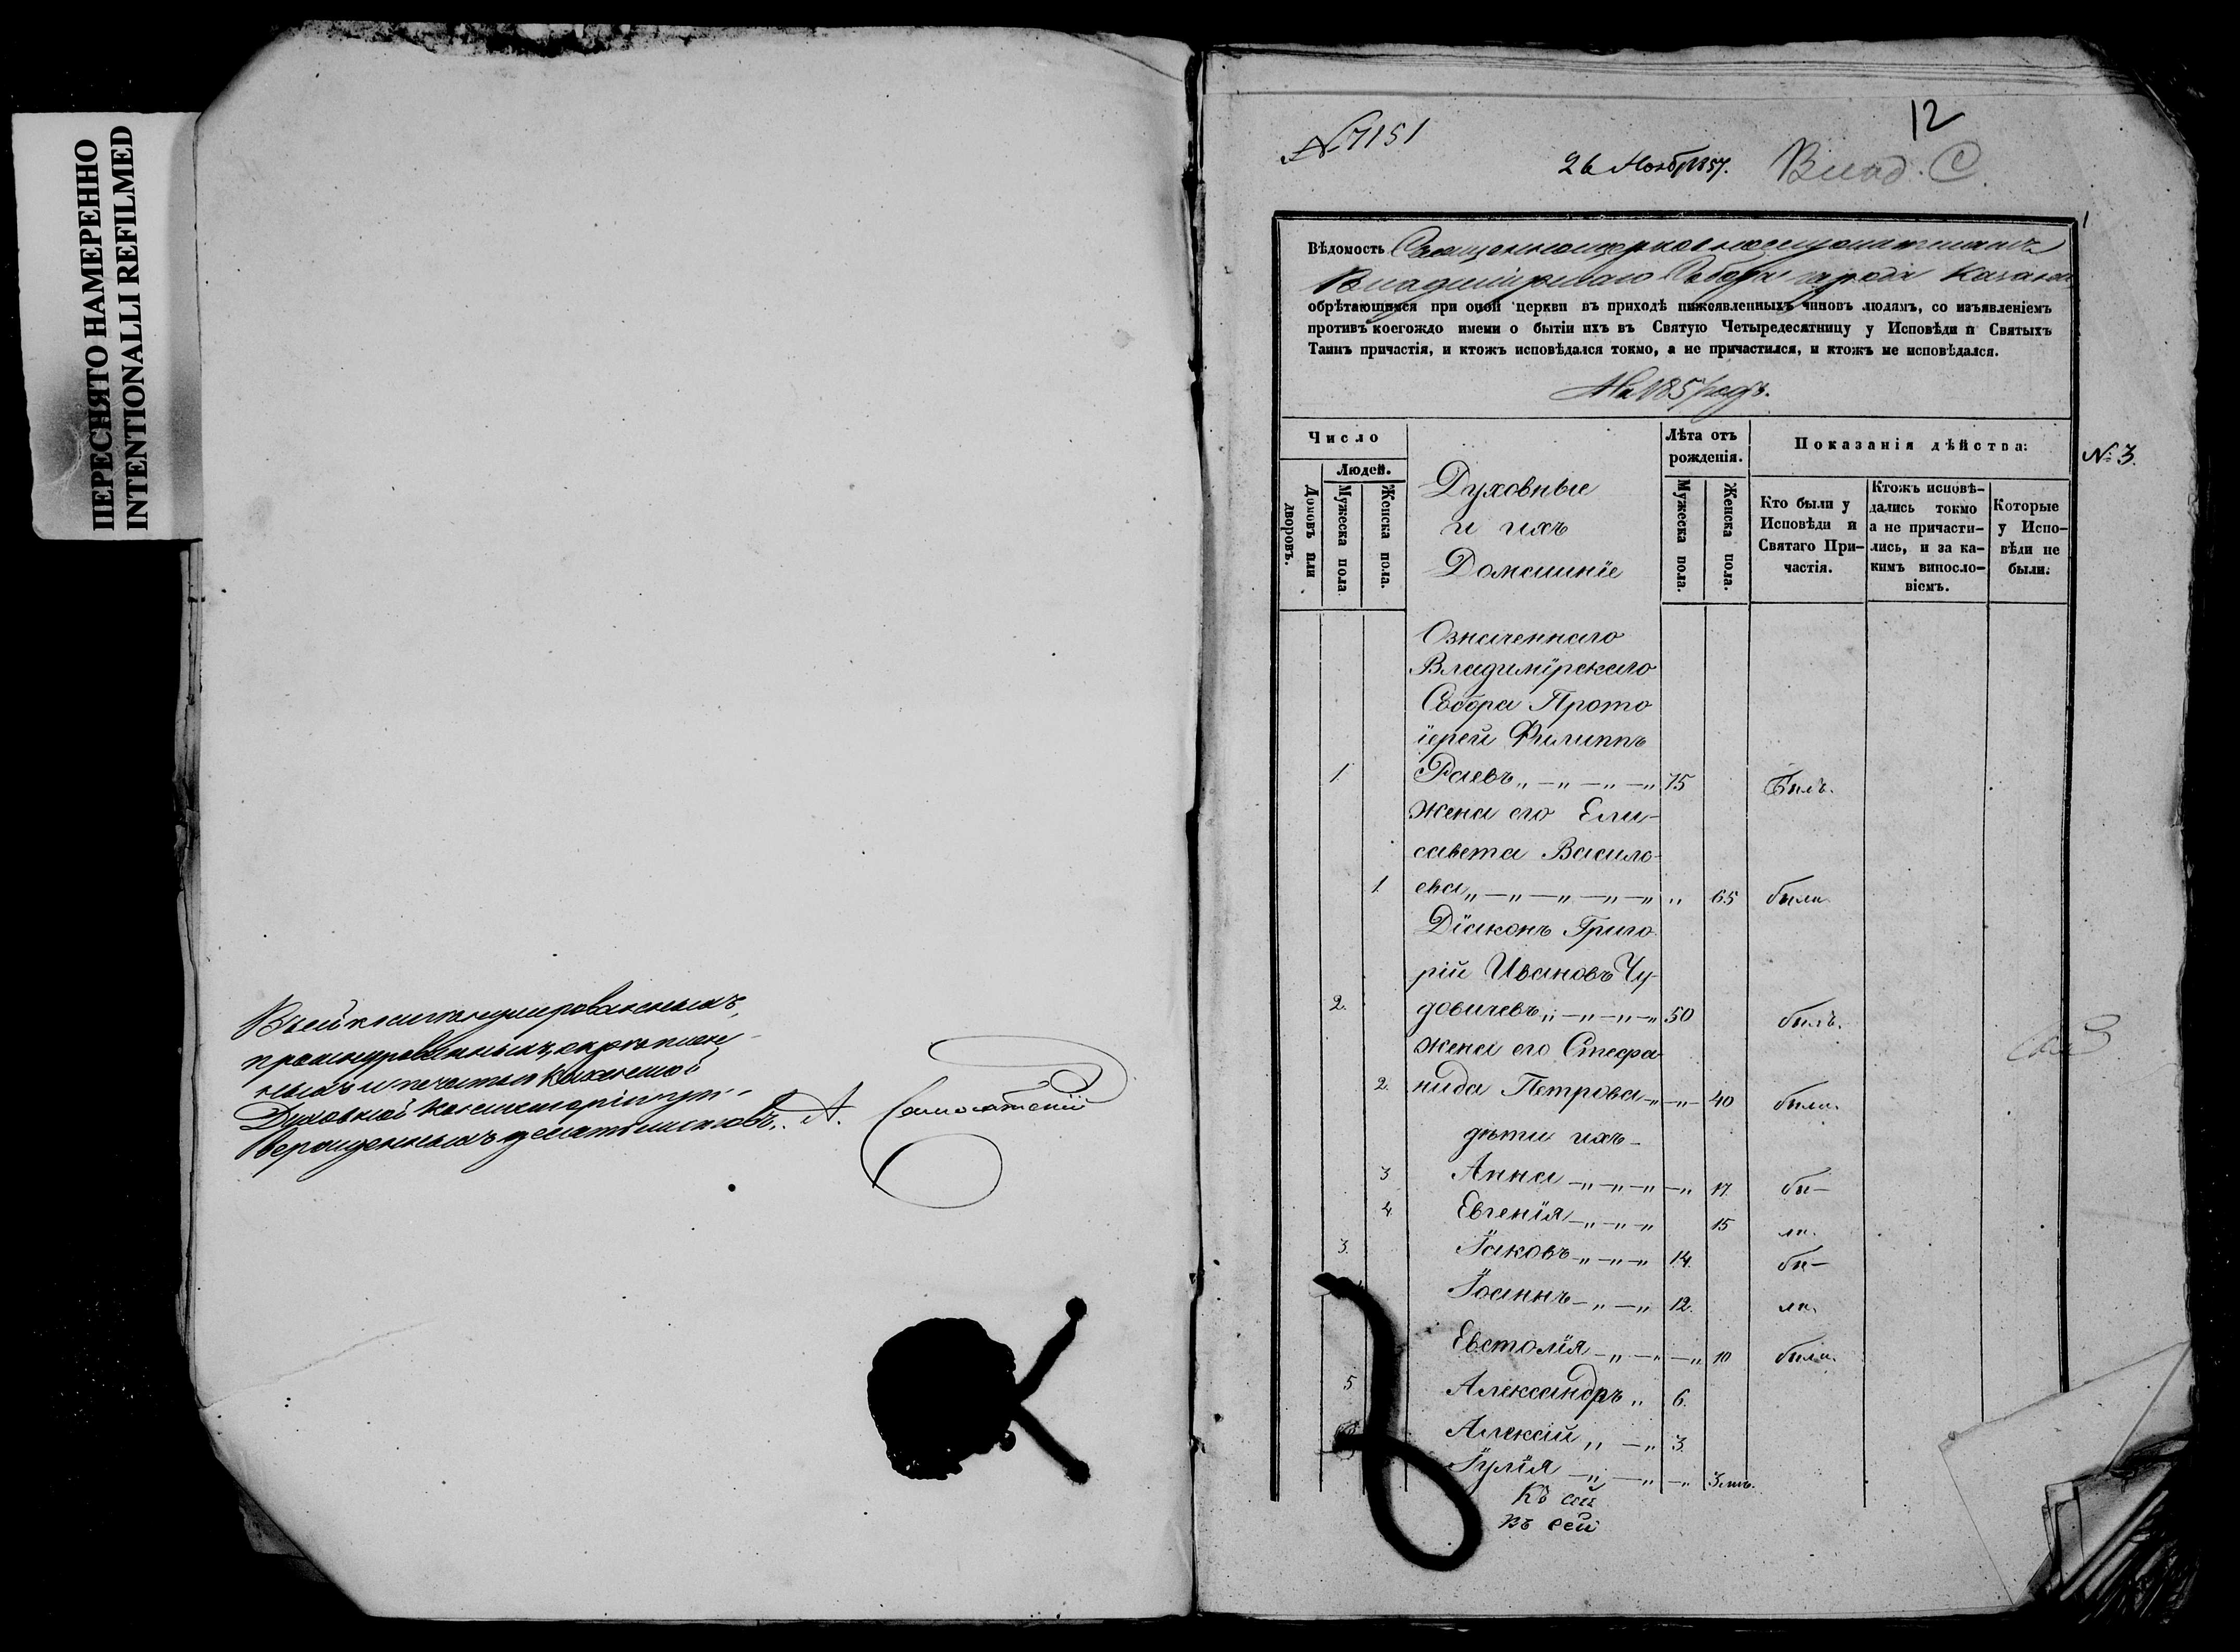 ПЕРЕСНЯТО НАМЕРЕННО
INTENTIONALLI REFILMED
Духовной Консисторіи
№ 7151
26 Ноябр 1857.
12
Влад. С
1
Вѣдомость Священноцерковнослужителямъ
Владимірскаго Собора города Казани
обрѣтающимся при оной церкви въ приходѣ нижеявленныхъ чиновъ людямъ, со изъявленіемъ
противъ коегождо имени о бытіи ихъ въ Святую Четыредесятницу у Исповѣди и Святыхъ
Таинъ причастія, и ктожъ исповѣдался токмо, а не причастился, и ктожъ не исповѣдался.
На 1857 годъ.
№ 3.
Число
Людей.
Домовъ или дворовъ.
Мужеска пола
Женска пола.
Духовные
и ихъ
Домашніе
Лѣта отъ рожденія.
Мужеска пола.
Женска пола.
Показанія дѣйства:
Кто были у Исповѣди и Святаго При-частія.
Ктожъ исповѣ-дались токмо а не причасти-лись, и за ка-кимъ винословіемъ.
Которые у Испо-вѣди не были.
Означеннаго
Владимірскаго
Собора Прото
іерей Филиппъ
1 Раевъ „ — „ — „ — „ 75 Былъ.
жена его Ели-
савета Василь-
1 ева „ — „ — „ — „ — „ „ 65 была
Діаконъ Григо
рій Ивановъ Чу-
2. довичевъ „ — „ — „ — „ 50 былъ.
жена его Стефа
2. нида Петрова „ — „ 40 была.
дѣти ихъ
3 Анна — „ — „ — „ — „ 17 бы—
4 Евгенія — „ — „ — „ 15 ли.
3. Іаковъ — „ — „ — „ 14. бы—
Іоаннъ — „ — „ 12. ли.
Евстолія — „ — „ — „ 10 была.
5 Александръ „ 6.
Алексій „ — „ 3.
Іулія — „ — „ — „ 3 мѣ.
Къ сей
къ сей